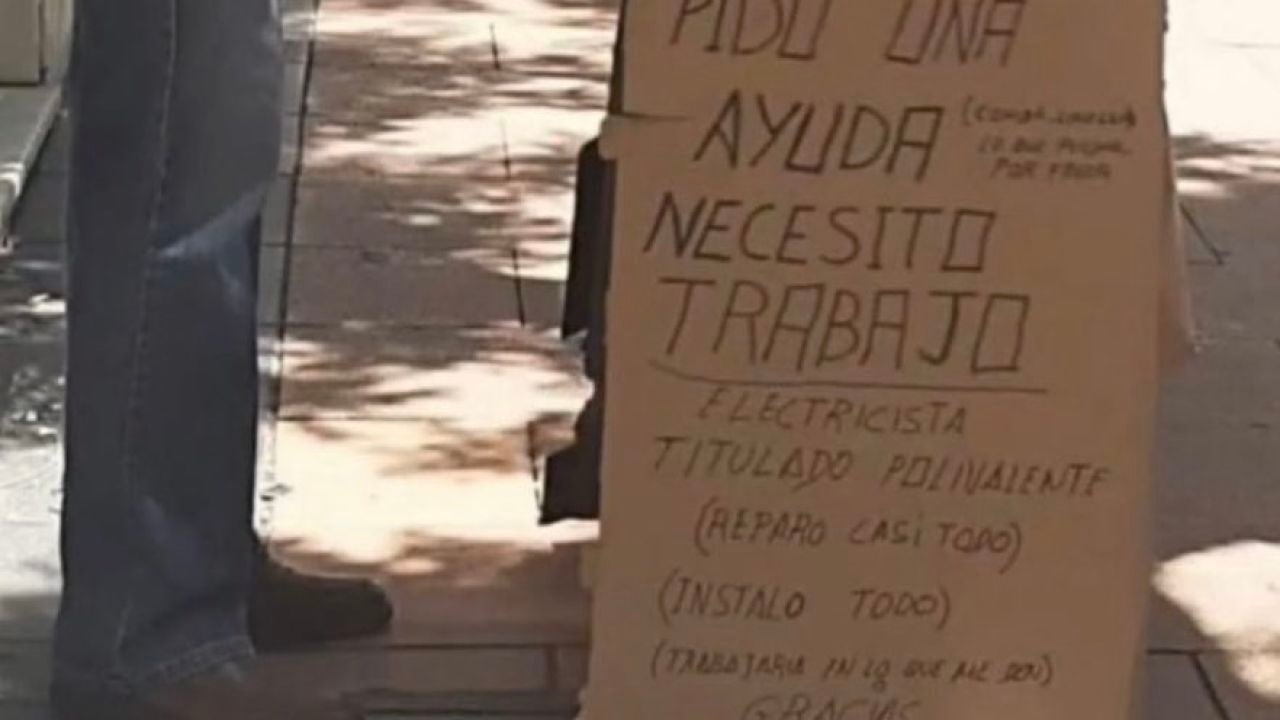 PIDO UNA
AYUDA
LO QUE
POR FAVOR
NECESITO
TRABAJO
ELECTRICISTA
TITULADO POLIVALENTE
(REPARO CASi TODO)
(INSTALO TODO)
(TRABAJARIA EN LO QUE ME DEN)
GRACIAS